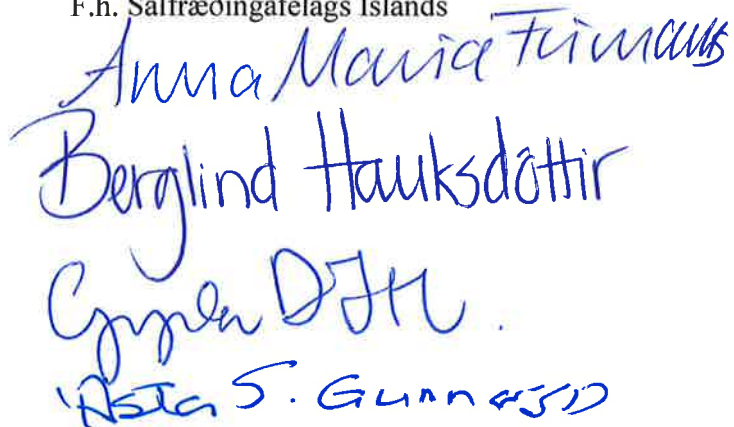 F.h. Sálfræðingafélags Íslands
Anna María Frímanns
Berglind Hauksdóttir
Ásta S. Gunnarsd